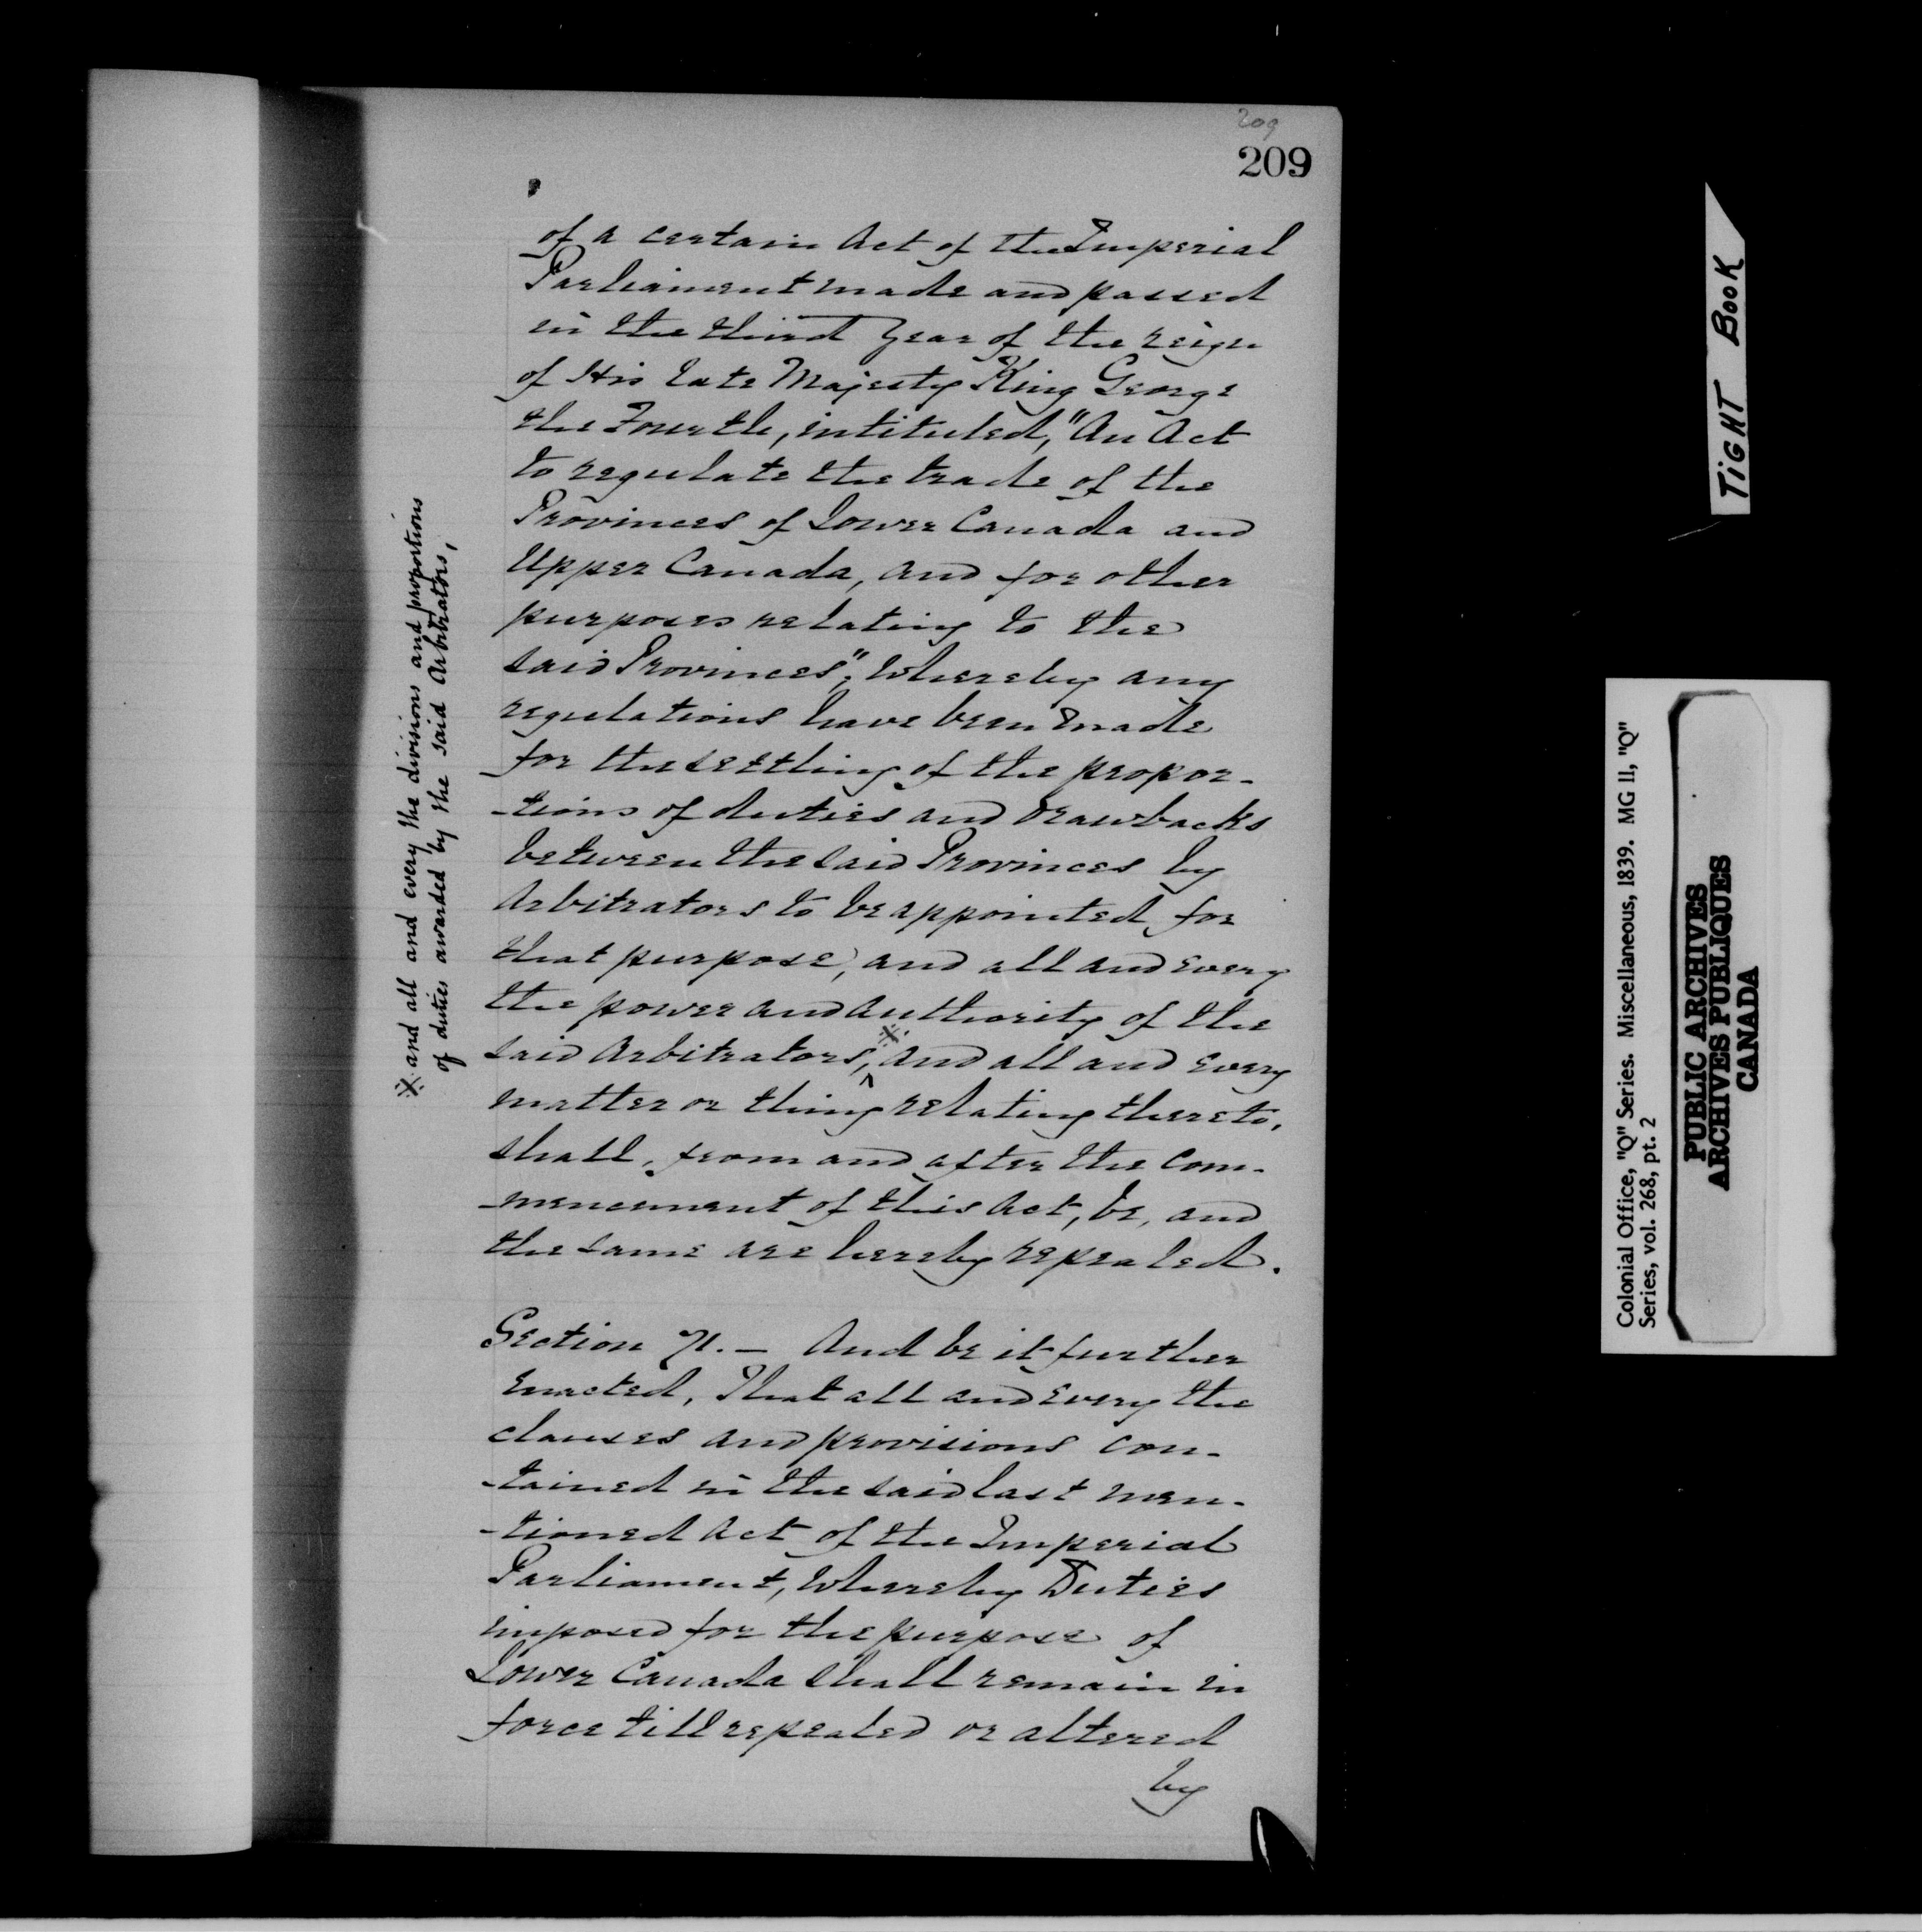 209
209
of a certain Act of the Imperial
Parliament made and passed
in the third Year of the reign
of His late Majesty King George
the Fourth, intituled, "An Act
to regulate the trade of the
Provinces of Lower Canada and
Upper Canada, and for other
purposes relating to the
said Provinces"; whereby any
regulations have been made
for the settling of the propor-
-tions of duties and drawbacks
between the said Provinces by
Arbitrators to be appointed for
that purpose, and all and every
the power and authority of the
said Arbitrators, ※ and all and every
matter or thing relating thereto,
shall, from and after the com-
-mencement of this Act, be, and
the same are hereby repealed.
Section 71. — And be it further
enacted, That all and every the
clauses and provisions con-
-tained in the said last men-
-tioned Act of the Imperial
Parliament, whereby Duties
imposed for the purpose of
Lower Canada shall remain in
force till repealed or altered
by
※ and all and every the divisions and proportions
of duties awarded by the said Arbitrators,
TIGHT BOOK
Colonial Office, "Q" Series. Miscellaneous, 1839. MG 11, "Q"
Series, vol. 268, pt. 2
PUBLIC ARCHIVES
ARCHIVES PUBLIQUES
CANADA